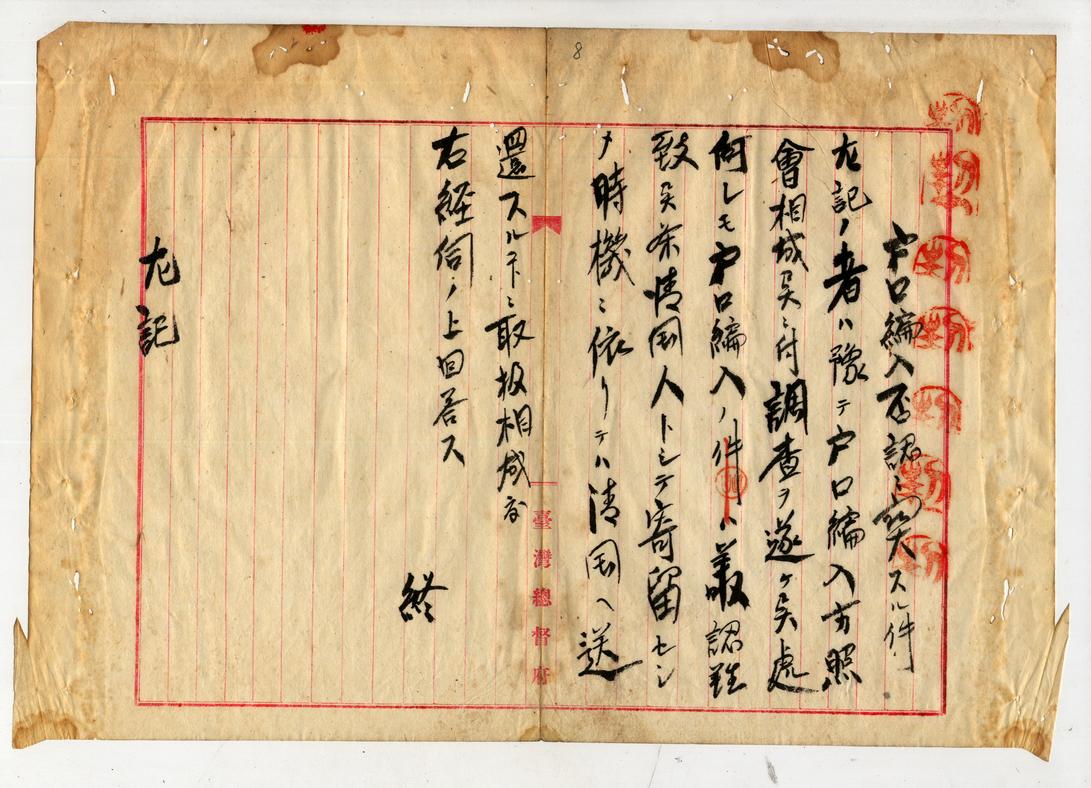 8
戸口編入否認ニ關スル件
左記ノ者ハ豫テ戸口編入方照
會相成候ニ付調査ヲ遂ケ候處
何レモ戸口編入ノ件ハ難認
致候条清国人トシテ寄留セシ
メ時機ニ依リテハ清国ヘ送
還スル等ニ取扱相成度
右経伺ノ上回答ス
終
左記
臺灣總督府